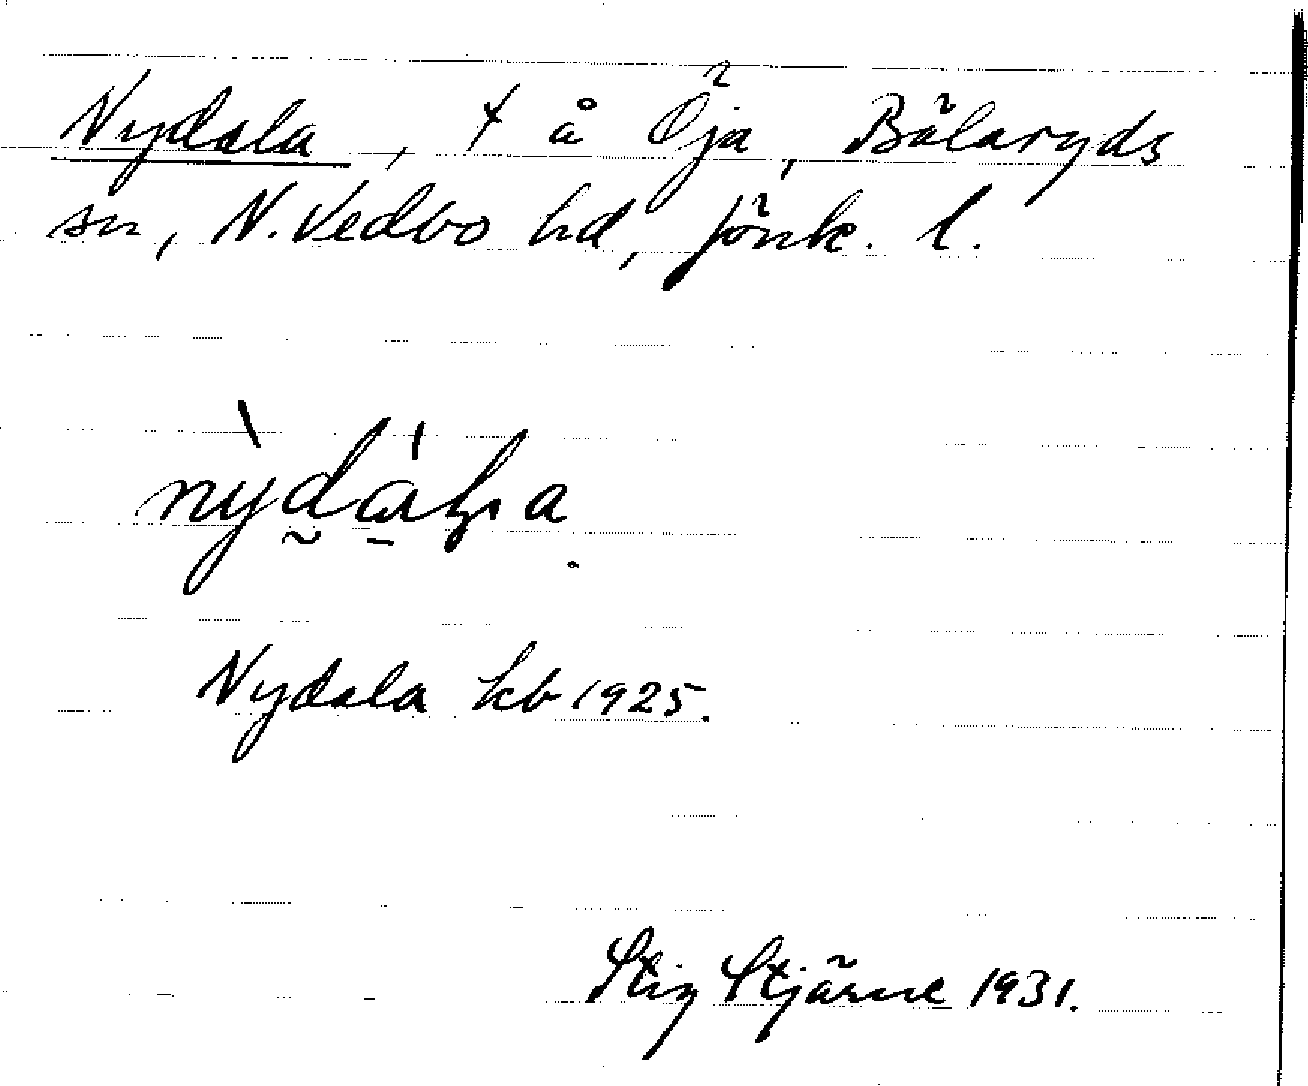 Nydala, t å Öja, Bälaryds
sn, N. Vedbo hd, Jönk. l.
Nydala kb 1925.
Stig Stjärne 1931.